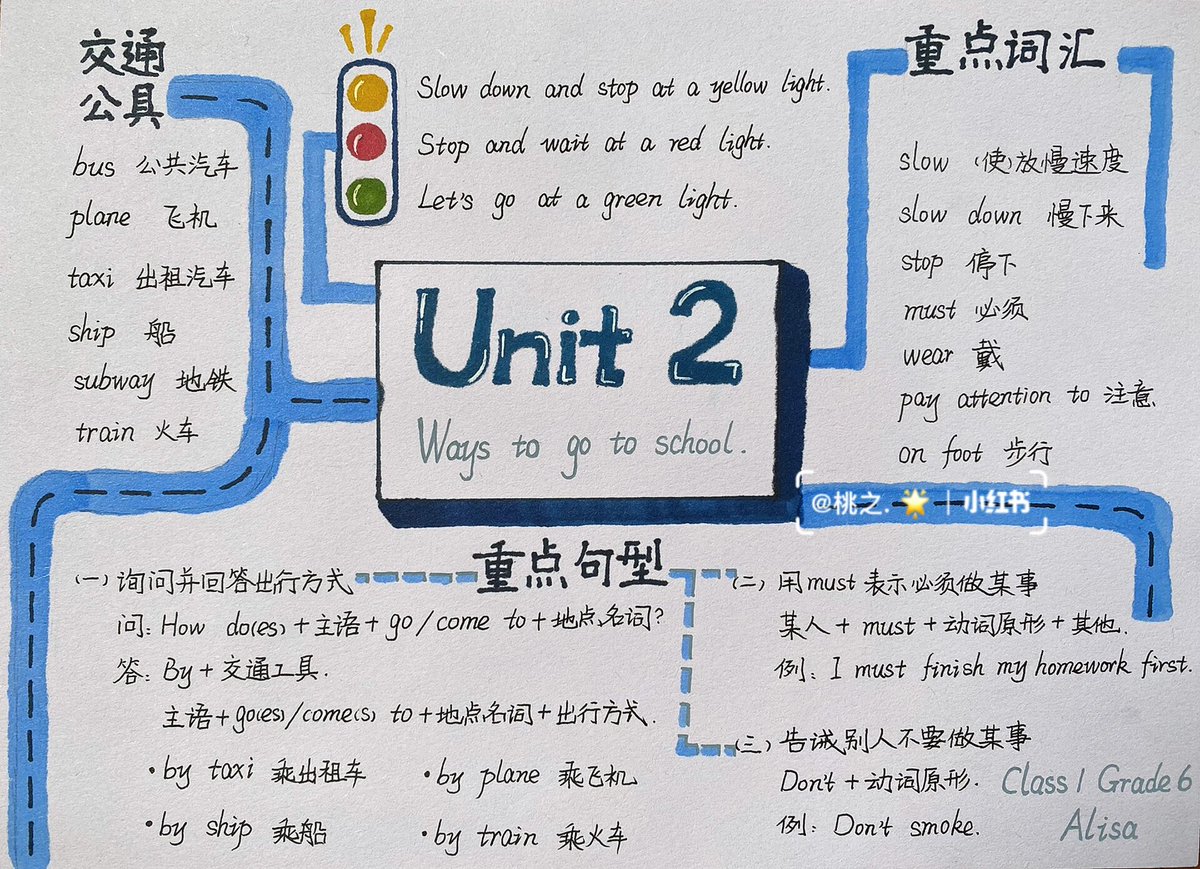 交通
公具
bus 公共汽车
plane 飞机
taxi 出租汽车
ship 船
subway 地铁
train 火车
Slow down and stop at a yellow light.
Stop and wait at a red light.
Let's go at a green light.
重点词汇
slow (使)放慢速度
slow down 慢下来
stop 停下
must 必须
wear 戴
pay attention to 注意
on foot 步行
Unit 2
Ways to go to school.
@桃之.🌟 | 小红书
重点句型
(一) 询问并回答出行方式
问: How do(es) + 主语 + go / come to + 地点名词?
答: By + 交通工具.
主语 + go(es) / come(s) to + 地点名词 + 出行方式.
·by taxi 乘出租车
·by plane 乘飞机
·by ship 乘船
·by train 乘火车
(二) 用must表示必须做某事
某人 + must + 动词原形 + 其他.
例: I must finish my homework first.
(三) 告诫别人不要做某事
Don't + 动词原形.
例: Don't smoke.
Class 1 Grade 6
Alisa